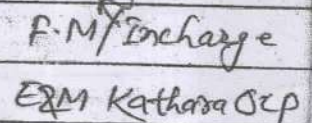 F.M/Incharge
E&M Kathara OCP